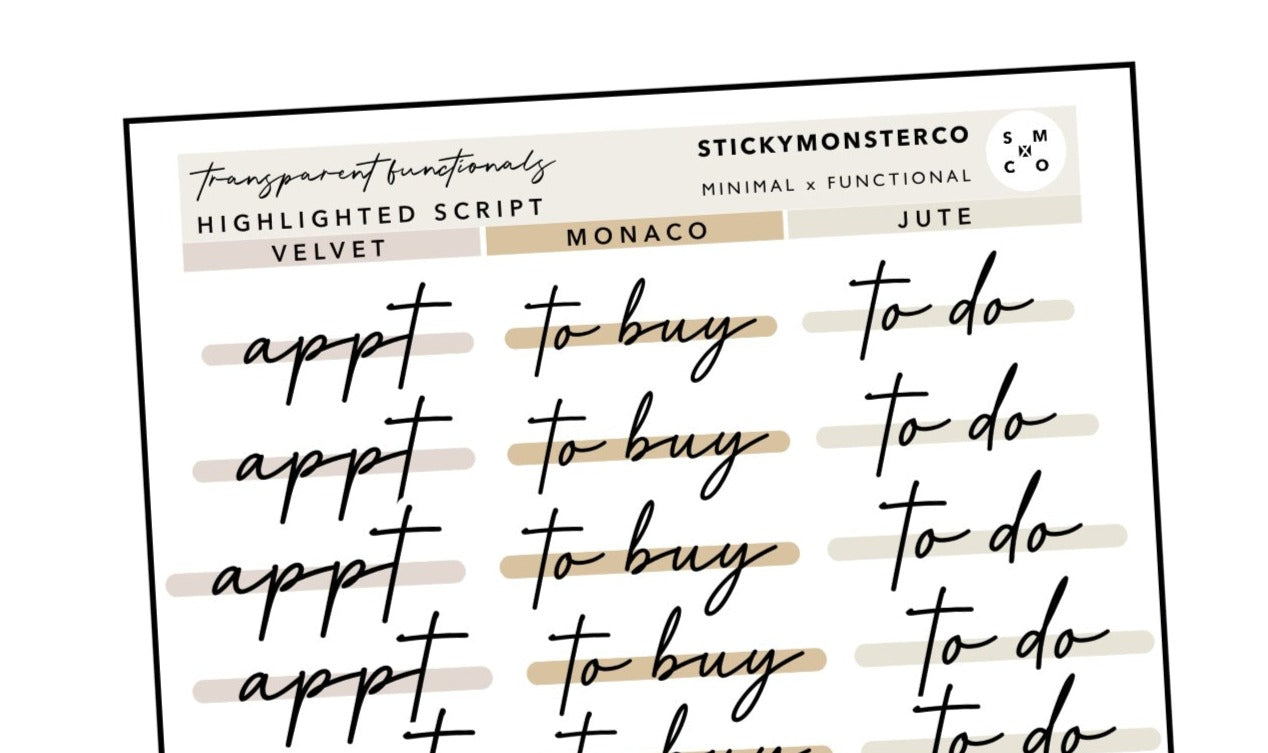 transparent functionals
HIGHLIGHTED SCRIPT
STICKYMONSTERCO
MINIMAL x FUNCTIONAL
S M
C O
VELVET MONACO JUTE
appt to buy to do
appt to buy to do
appt to buy to do
appt to buy to do
to buy to do